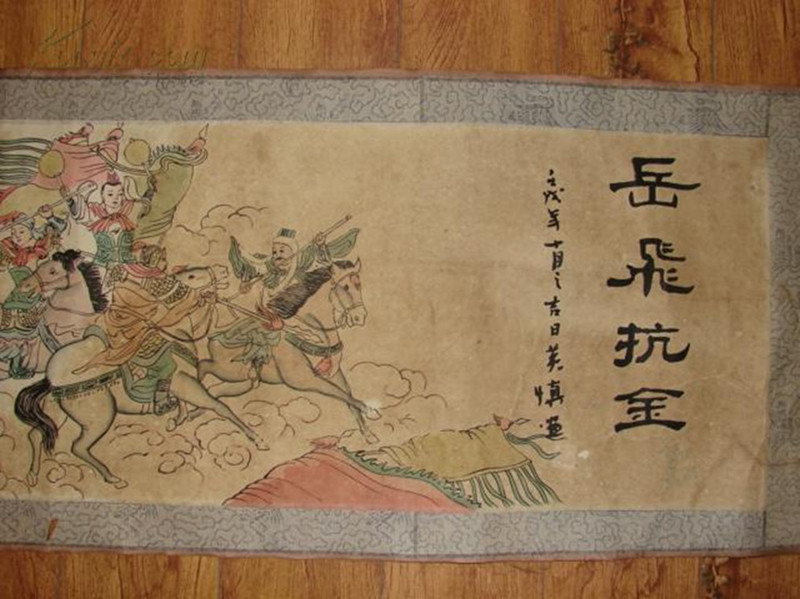 岳飛抗金
壬戌年十月之吉日英慎画